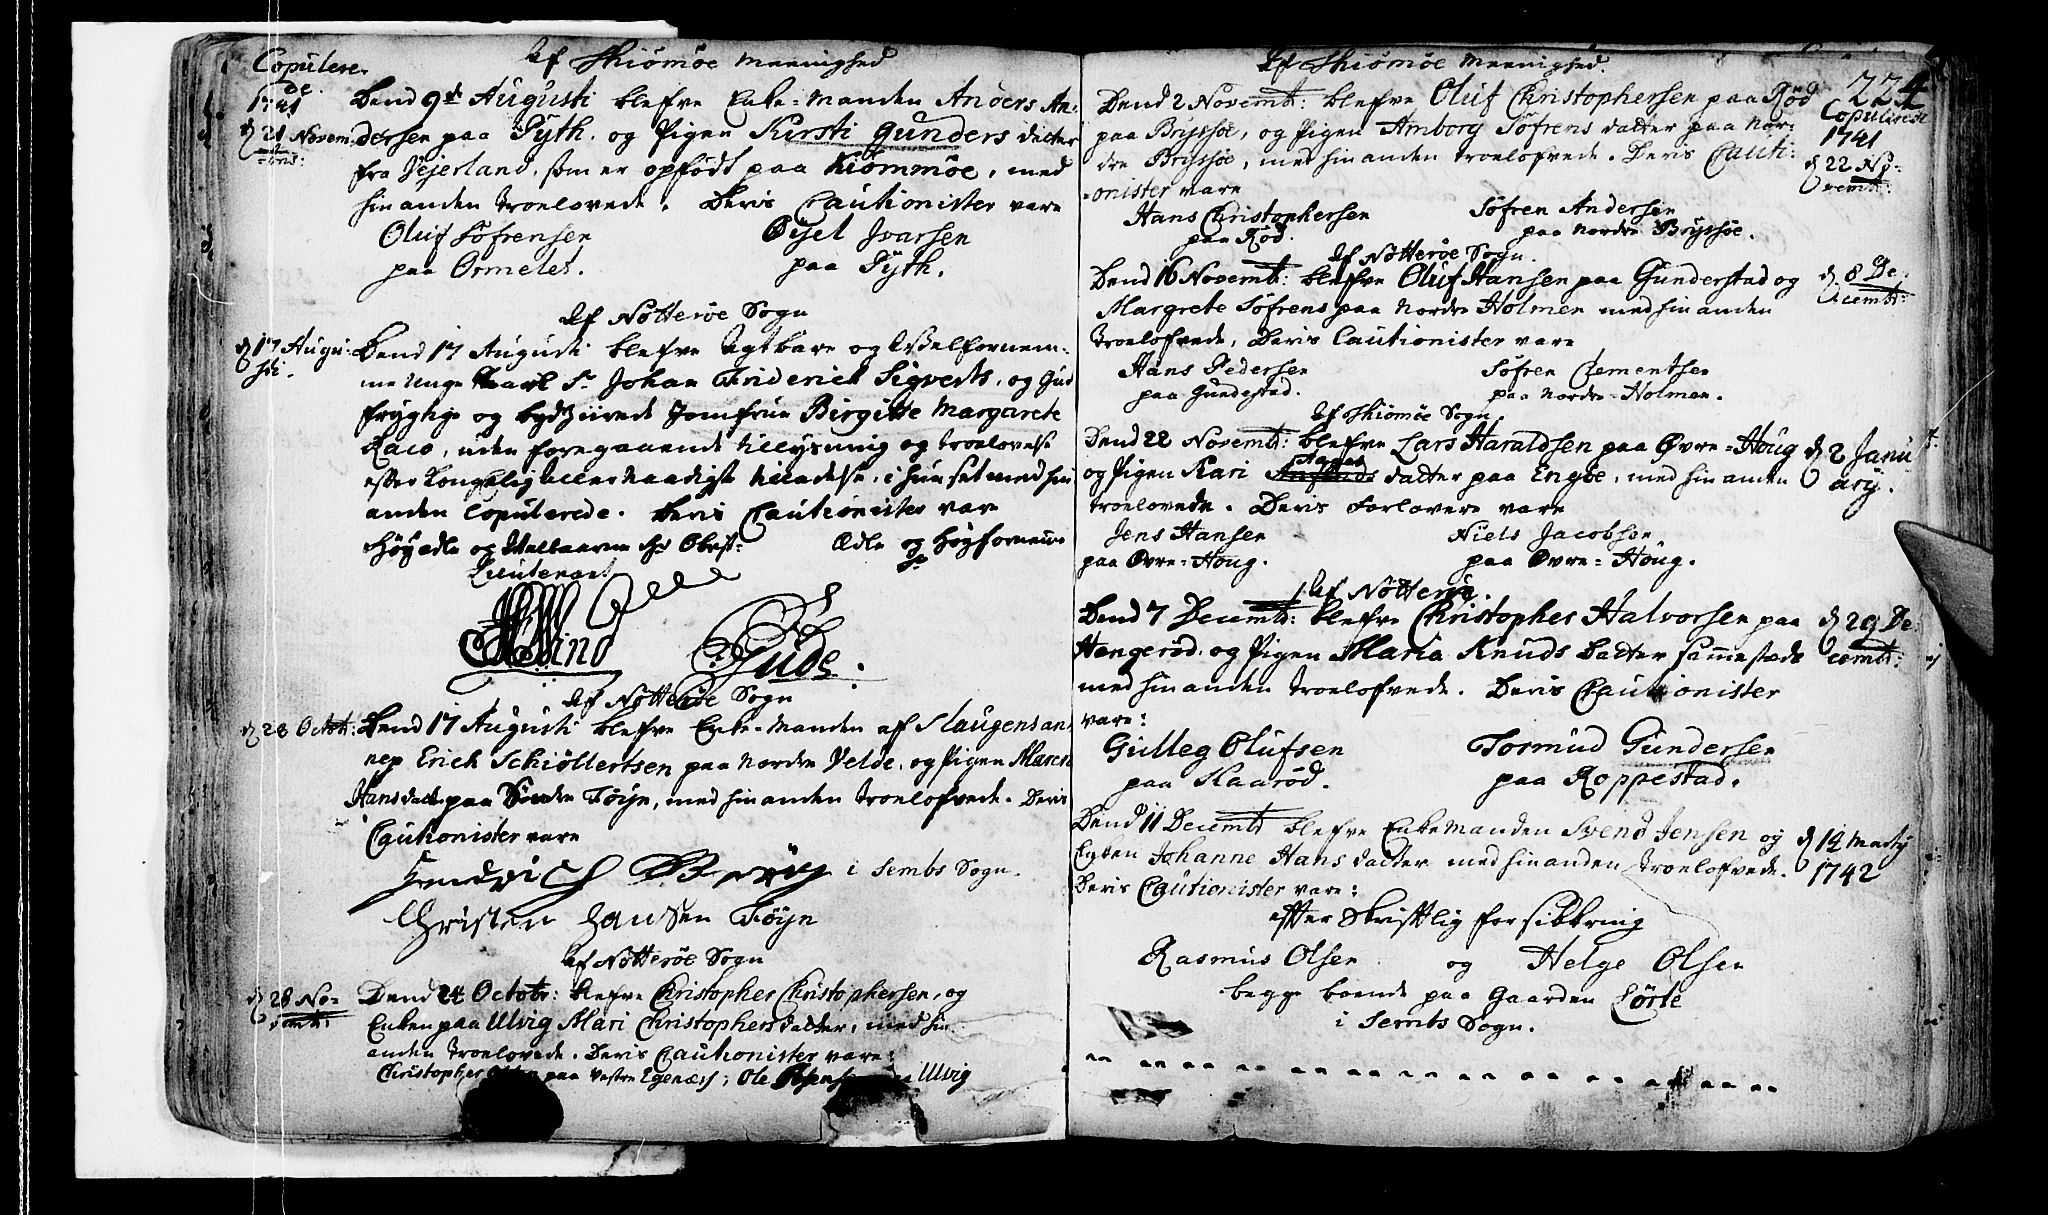 Copulere
de
1741
d 21 Novem
Af Thiømøe Meenighed
Dend 9de Augusti blefve Enke-Manden Anders An-
dersen paa Pyth. og Pigen Kirsti Gunders datter
fra Jejerland, som er opfødt paa Kiømmøe, med
hin anden troelovede. Deris Cautionister vare
Oluf Søfrensen
paa Ormelet.
Ojel Jvarsen
paa Pyth.
Af Nøtterøe Sogn
d 17 Augu-
sti.
Dend 17 Augusti blefve Agtbare og Velfornem-
me Unge Karl Sr Johan Friderich Sigverts, og Gud
frygtige og Birgitte Margarete
uden foregaaende tillysning og troelovelse
efter Kongelig allernaadigste tilladelse, i huuset med hin
anden Copulerede. Deris Cautionister vare
Høyædle og Velbaarne Hr Obrist-
Lieutenant
Ædle og Høyfornemme
Sr
Wind
Gude.
Af Nøtterøe Sogn
d 28 Octob:
Dend 17 Augusti blefve Enke-Manden af Slaugens an-
nex Erich Schiøllertsen paa Nordre Velde, og Pigen Maren
Hansdatter paa Søndre Føyn, med hin anden troelofvede. Deris
Cautionister vare
Hendrich i Sembs Sogn.
Christen Hansen Føÿn
Af Nøtterøe Sogn
d 28 No-
vemb:
Dend 24 Octobr: blefve Christopher Christophersen, og
Enken paa Ulvig Mari Christophers datter, med hin
anden troelovede. Deris Cautionister vare:
Christopher paa Vestre Egenæss; Ole Ulvig
Af Thiømøe Meenighed.
224
Copulerede
1741
d 22 No-
vemb:
Dend 2 Novemb: blefve Oluf Christophersen paa Rød
paa Bryssøe, og Pigen Amborg Søfrens datter paa Nor-
dre Bryssøe, med hin anden troelofvede. Deris Cauti-
onister vare
Hans Christophersen
paa Rød.
Søfren Andersen
paa Nordre Bryssøe.
Af Nøtterøe Sogn.
d 8 De-
cemb:
Dend 16 Novemb: blefve Oluf Hansen paa Gunderstad og
Margrete Søfrens paa Nordre Holmen med hin anden
troelofvede, Deris Cautionister vare
Hans Pedersen
paa Gundestad.
Søfren Clementsen
paa Nordre-Holmen.
Af Thiømøe Sogn.
d 2 Janu
arij.
Dend 22 Novemb: blefve Lars Haraldsen paa Øvre-Houg
og Pigen Kari datter paa Engøe, med hin anden
troelovede. Deris Forlovere vare
Jens Hansen
paa Øvre-Houg.
Niels Jacobsen
paa Øvre-Houg.
Af Nøtterøe.
d 29 De-
cemb:
Dend 7 Decemb: blefve Christopher Halvorsen paa
Hengerød. og Pigen Maria Knuds datter sammestæds
med hin anden troelofvede. Deris Cautionister
vare:
Gulleg Olufsen
paa Skaarød.
Tormud Gundersen
paa Roppestad.
d 12 Martij
1742
Dend 11 Decemb blefve Enkemanden Svend Jensen og
Enken Johanne Hans datter med hin anden troelofvede.
Deris Cautionister vare:
efter Skriftlig forsikkring
Rasmus Olsen og Helge Olsen
begge boende paa Gaarden Sørte
i Sembs Sogn.